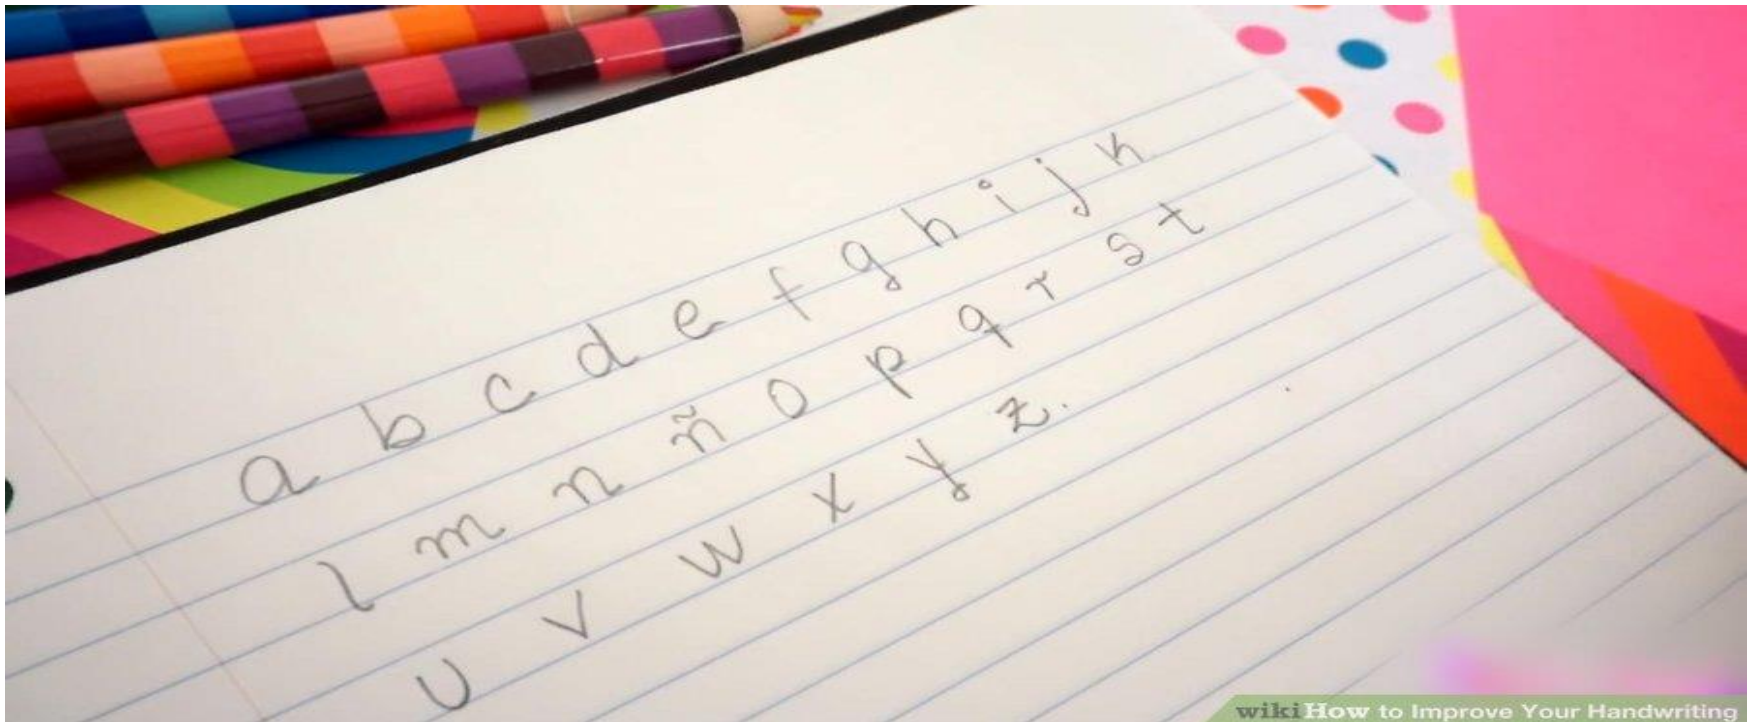 a b c d e f g h i j k
l m n ñ o p q r s t
u v w x y z.
wikiHow to Improve Your Handwriting